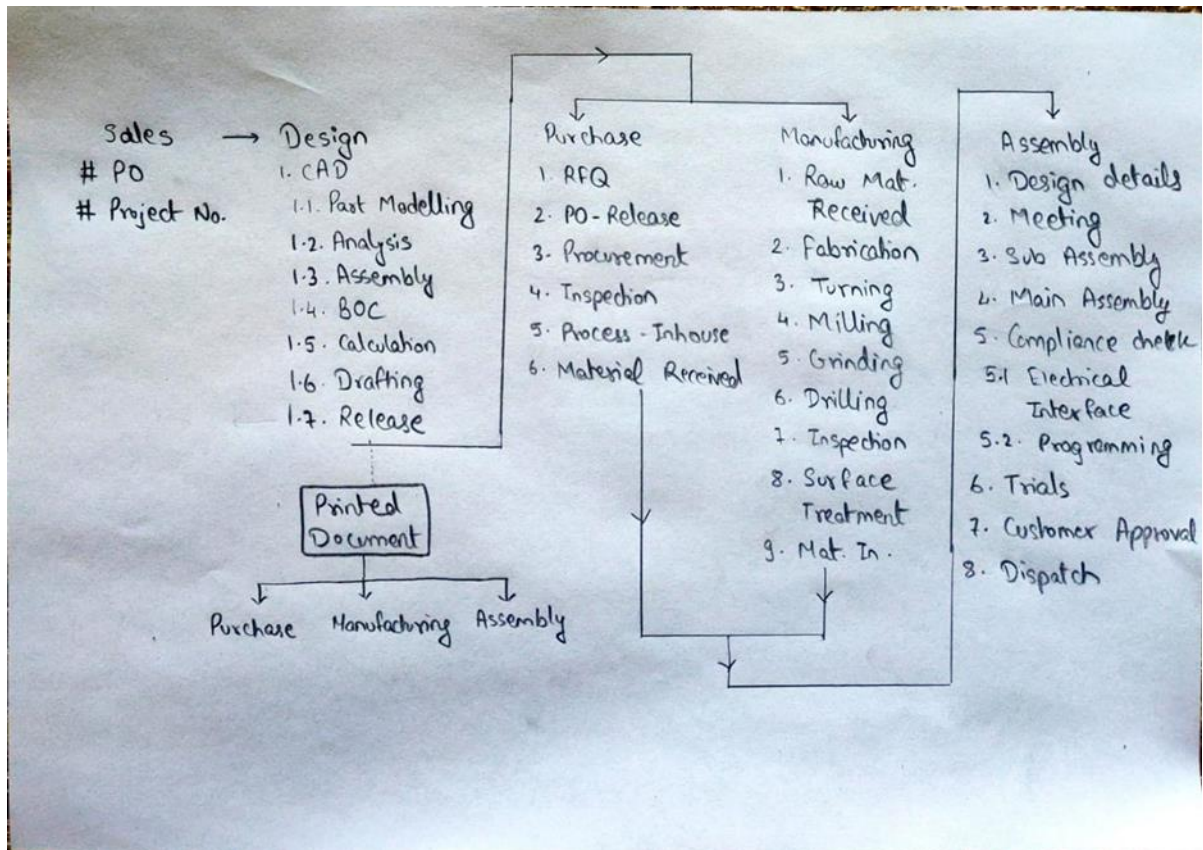 Sales → Design
# PO
# Project No.
1. CAD
1.1. Part Modelling
1.2. Analysis
1.3. Assembly
1.4. BOC
1.5. Calculation
1.6. Drafting
1.7. Release
Printed
Document
Purchase Manufacturing Assembly
Purchase
1. RFQ
2. PO-Release
3. Procurement
4. Inspection
5. Process - Inhouse
6. Material Received
Manufacturing
1. Raw Mat.
Received
2. Fabrication
3. Turning
4. Milling
5. Grinding
6. Drilling
7. Inspection
8. Surface
Treatment
9. Mat. In.
Assembly
1. Design details
2. Meeting
3. Sub Assembly
4. Main Assembly
5. Compliance check
5.1 Electrical
Interface
5.2. Programming
6. Trials
7. Customer Approval
8. Dispatch